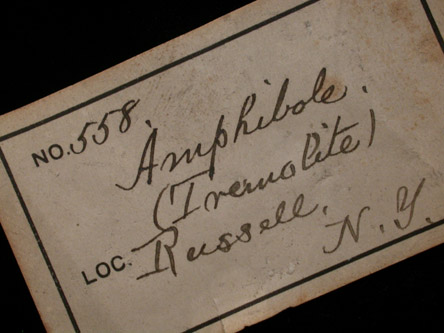 NO. 558.
Amphibole.
(Tremolite)
LOC. Russell,
N.Y.